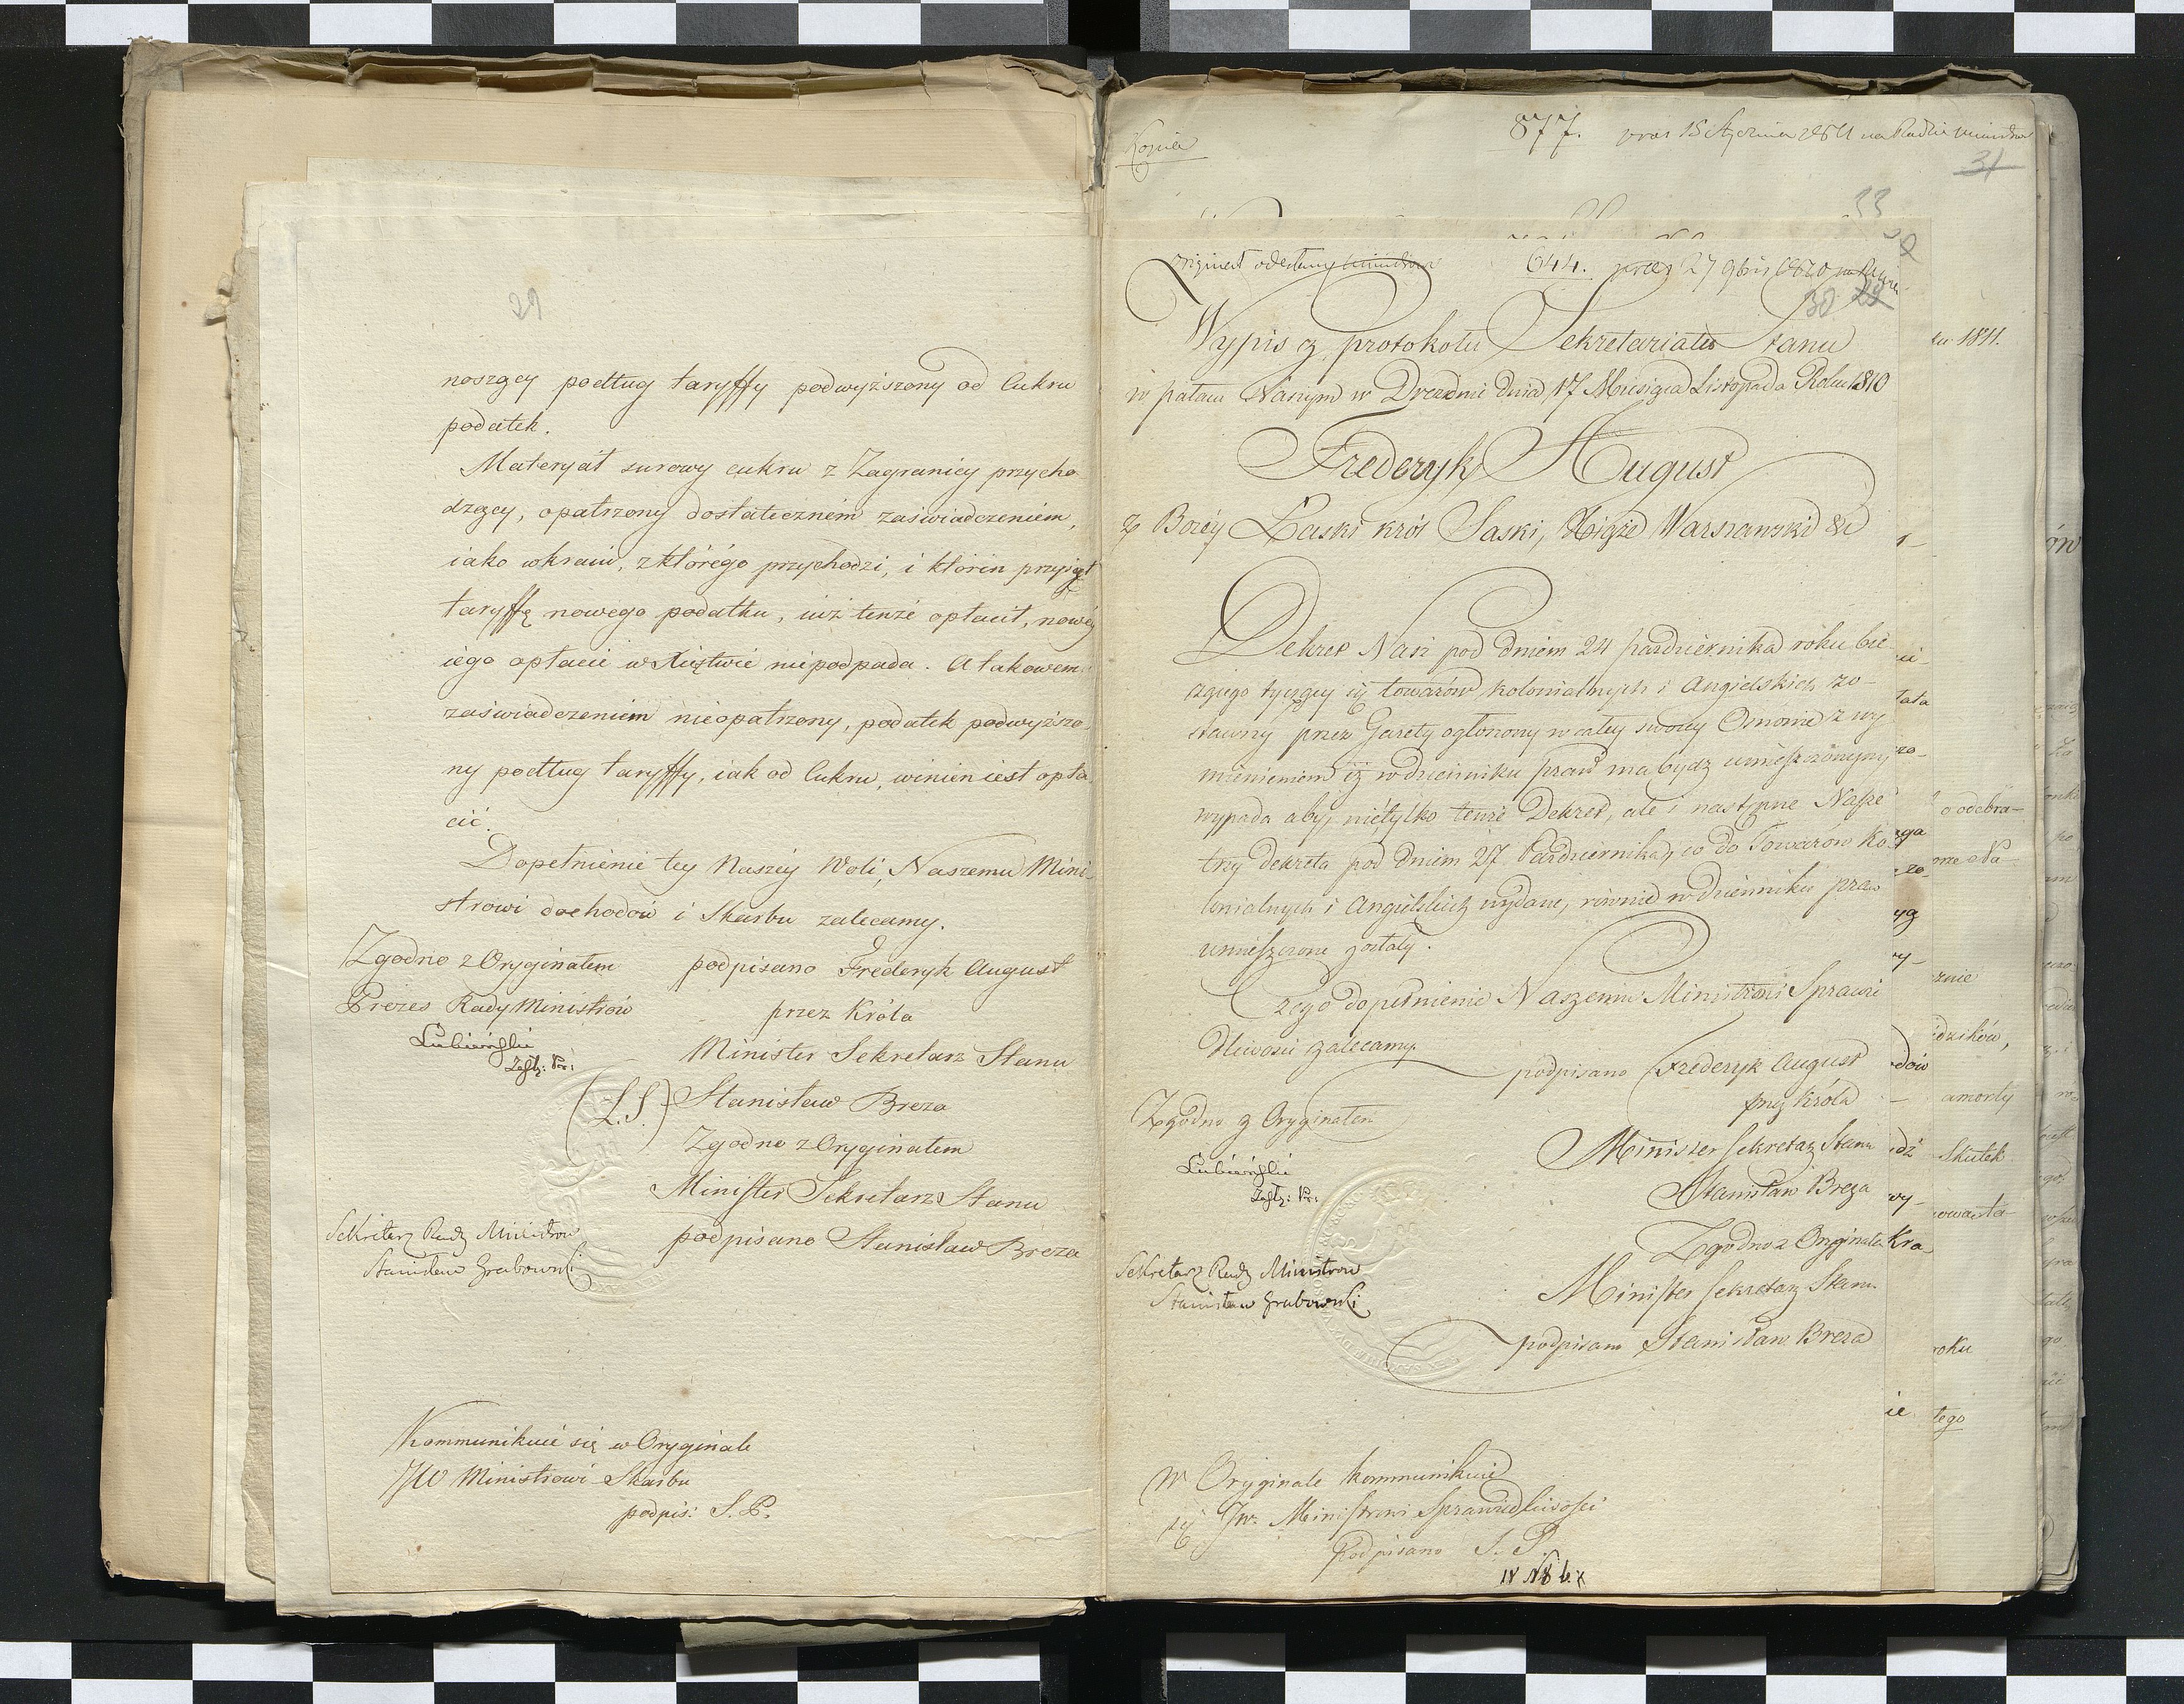 29
noszący podług taryffy podwyższony od Cukru
podatek.
Materyał surowy cukru z Zagranicy przycho
dzący, opatrzony dostatecznem zaświadczeniem,
iako w kraiu, z którego przychodzi, i którin przyiął
taryffę nowego podatku, iuż tenże opłacił, nowey
iego opłacie w Xięstwie niepodpada. A takowem
zaświadczeniem nieopatrzony, podatek podwyższo-
ny podług taryffy, iak od Cukru, winien iest opła
cić.
Dopełnienie tey Naszey Woli, Naszemu Mini-
strowi dochodów i Skarbu zalecamy.
Zgodno z Oryginałem podpisano Frederyk August
Prezes Rady Ministrów przez Króla
Lubieński Minister Sekretarz Stanu
Zastę: Pr:
(L.S.) Stanisław Breza
Zgodno z Oryginałem
Minister Sekretarz Stanu
Sekretarz Rady Ministrow podpisano Stanisław Breza
Stanisław Grabowski
Kommunikuie się w Oryginale
JW Ministrowi Skarbu
podpis: S. B.
Kopia
877. 15 Stycznia na Radzie Ministrow
31
33
Originał odesłany Ministrow 644. prez 27 9bris 1810
30 29
Wypis z protokołu Sekretariatu Stanu
w pałacu Naszym w Dreźdnie Dnia 17 Miesiąca Listopada Roku 1810
Frederyk August
z Bożey Łaski król Saski, Xiąże Warszawski &c
Dekret Nasz pod dniem 24 października roku bie-
żącego tyczący się towarów kolonialnych i Angielskich zo-
stawny przez Gazety ogłoszony w całey swoiey Osnowie z wy
mienieniem iż w dzienniku praw ma bydz umieszczonym,
wypada aby nietylko tenże Dekret, ale i następne Nasze
trzy dekreta pod dniem 27 Października, co do Towarów Ko-
lonialnych i Angielskich wydane, rownie w dzienniku praw
umieszczone zostały.
Czego dopełnienie Naszemu Ministrowi Sprawie
dliwości zalecamy.
podpisano Frederyk August
Zgodno z Oryginałem przez Króla
Lubieński Minister Sekretarz Stanu
Zastę: Pr: Stanisław Breza
Zgodno z Oryginałem
Sekretarz Rady Ministrow Minister Sekretarz Stanu
Stanisław Grabowski
podpisano Stanisław Breza
W Oryginale kommunikuie
się Jw. Ministrowi Sprawiedliwości
Podpisano
1811.
o odebra-
dzików,
amorty
Skutek
roku
tego